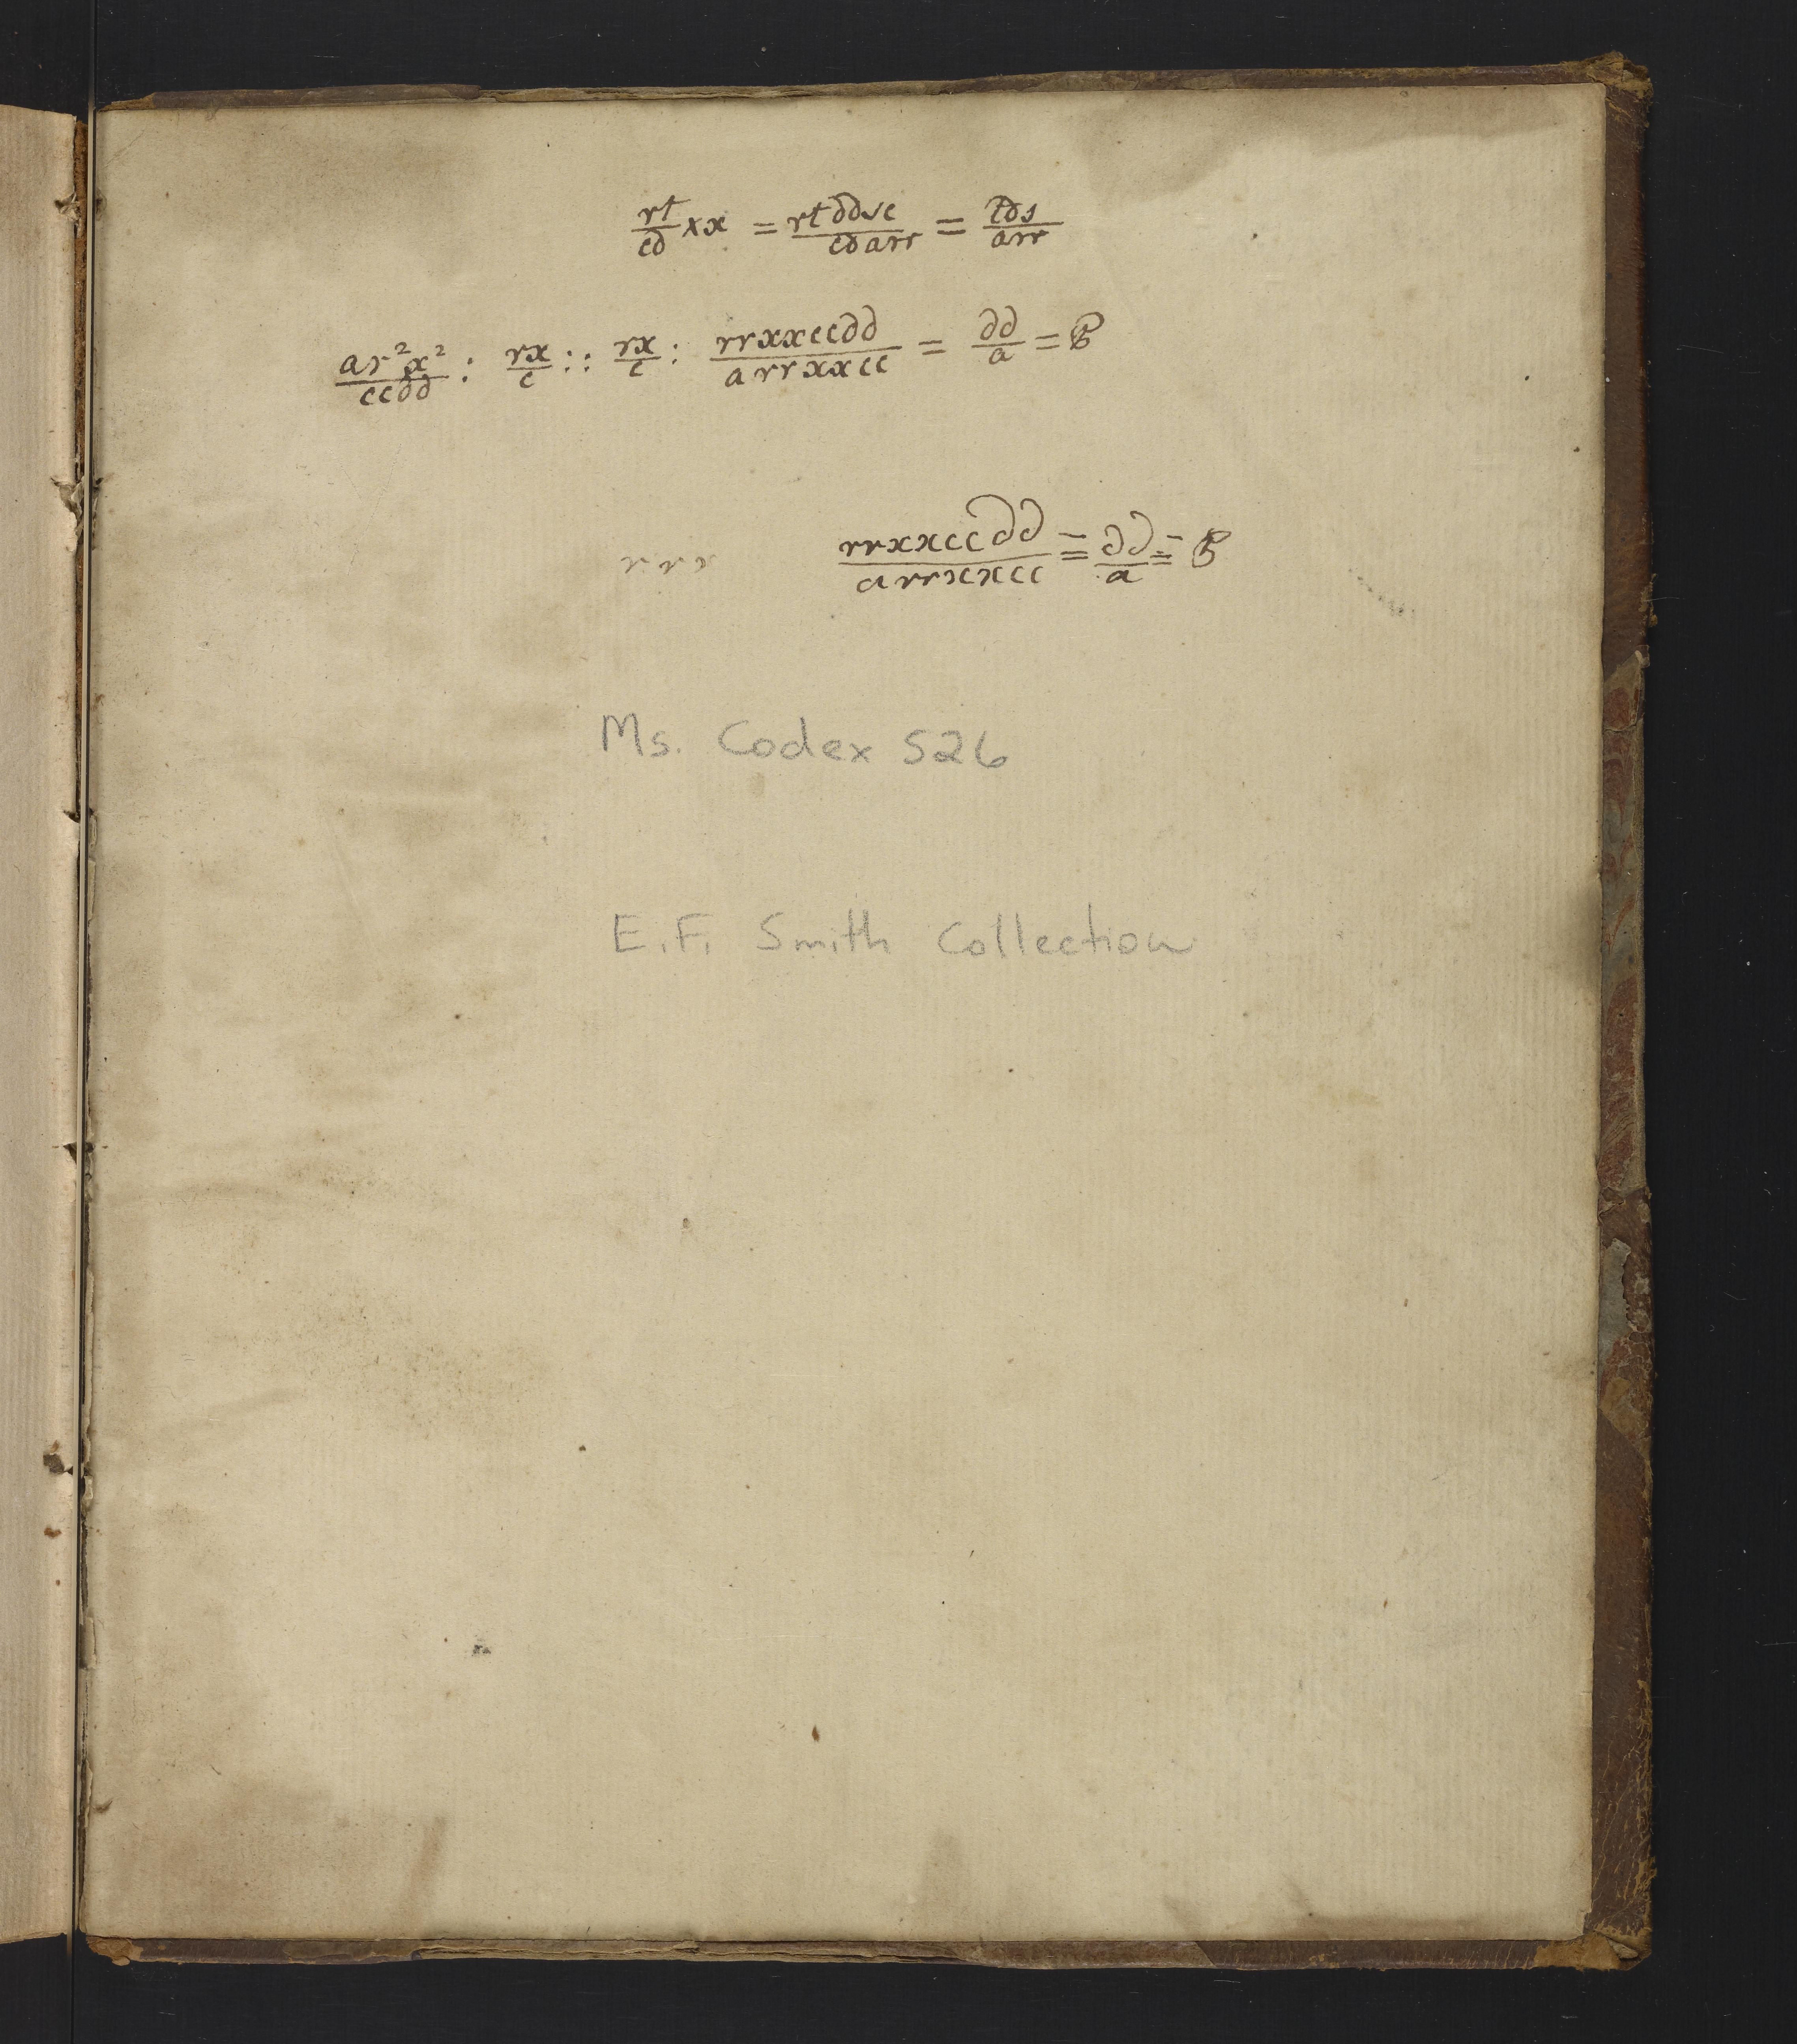 rt/cd × x = rtddsc/cdarr = tds/arr
ar²x²/ccdd : rx/c :: rx/c : rrxxccdd/arrxxcc = dd/a = B
r r r rrxxccdd/arrxxcc = dd/a = B
Ms. Codex 526
E.F. Smith Collection